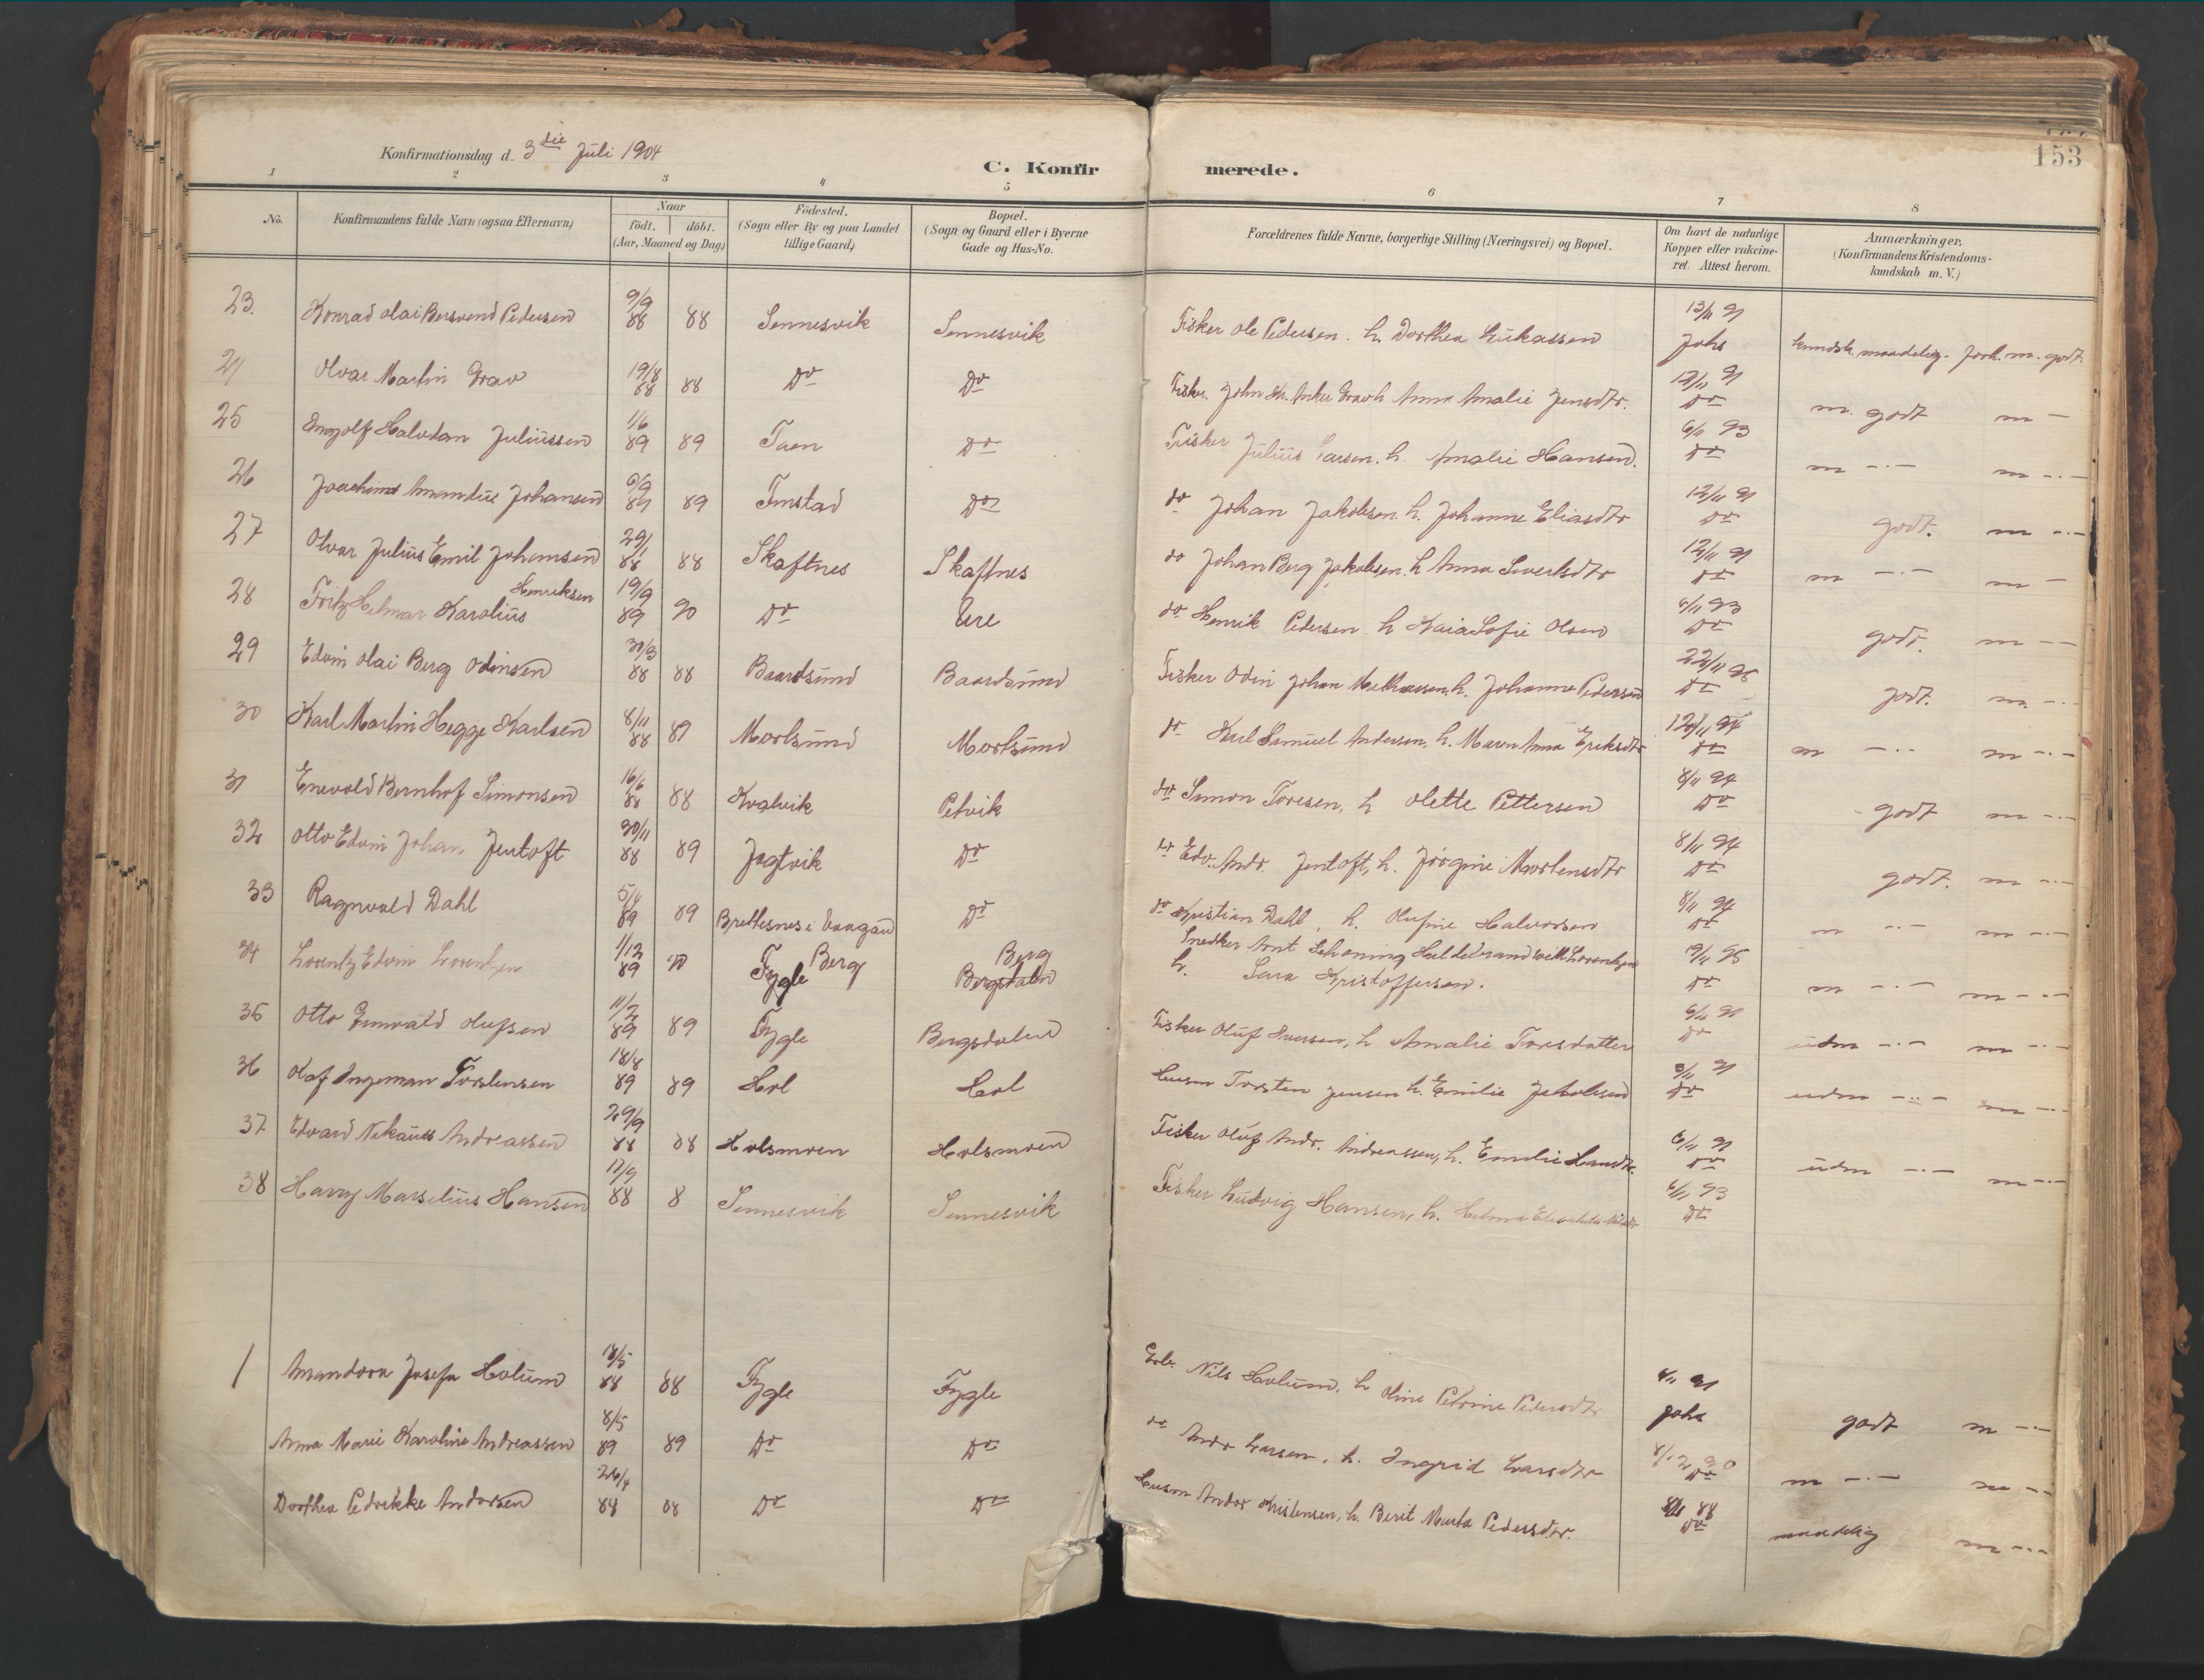 153
Konfirmationsdag d. 3die Juli 1904
C. Konfirmerede.
1 2 3 4 5 6 7 8
No. Konfirmandens fulde Navn (ogsaa Efternavn) Naar födt. döbt. (Aar, Maaned og Dag) Födested. (Sogn eller By og paa Landet tillige Gaard) Bopæl. (Sogn og Gaard eller i Byerne Gade og Hus-No. Forældrenes fulde Navne, borgerlige Stilling (Næringsvei) og Bopæl. Om havt de naturlige Kopper eller vakcineret. Attest herom. Anmærkninger. (Konfirmandens Kristendomskundskab m. V.)
23. Konrad Olai Bersvend Pedersen 9/9 88 88 Sennesvik Sennesvik Fisker Ole Pedersen. h. Dorthea Lukassen 13/11 91 Johs kundsk. maadelig. forh. m. godt.
24 Olvar Martin Grav 19/8 88 88 Do Do Fisker John Anker Grav h Anna Amalie Jensdtr. 12/11 91 Do m. godt m —
25 Ingolf Halvdan Juliussen 1/6 89 89 Taen Do Fisker Julius Larsen. h. Amalie Hansen. 6/11 93 Do m -.- m -.-
26 Joachim Amandus Johansen 9/9 89 89 Finstad Do do Johan Jakobsen. h. Johanne Eliasdtr 12/11 91 Do godt. m -.-
27 Olvar Julius Emil Johansen 29/1 88 88 Skaftnes Skaftnes do Johan Berg Jakobsen. h Anna Sivertsdtr 12/11 91 Do m -.- m —
28 Fritz Helmar Karolius Henriksen 19/9 89 90 Do Ure do Henrik Pedersen h Kaia Sofie Olsen 6/11 93 Do godt. m --
29 Edvin Olai Berg Odinsen 30/3 88 88 Baardsund Baardsund Fisker Odin Johan h. Johanne Pedersen 22/11 Do godt. m. -.
30 Karl Martin Hegge Karlsen 8/11 88 89 Mortsund Mortsund do Karl Samuel Andersen, h. Maren Anna Eriksdtr 12/11 94 Do m -.- m -.-
31 Enevold Bernhof Simonsen 16/6 88 88 Kvalvik Petvik do Simon Toresen, h Olette Pettersen 8/11 94 Do godt m -.-
32 Otto Edvin Johan Jentoft 30/11 88 89 Jagtvik Do do Edv. Andr. Jentoft, h. Jörgine Mortensdtr 8/11 94 Do godt. m -.-
33 Ragnvald Dahl 5/4 89 89 Brettesnes i Vaagan Do do Kristian Dahl, h. Olufine Halvorsen 8/11 94 Do m -.- m -.-
34 Lorentz Edvin Lorentzen 1/12 89 90 Berg Fygle Berg Bergsdalen Snedker Arnt Schöning Lorentzen h. Sara Kristoffersen. 19/11 95 Do m -.- m -.-
35 Otto Enevald Olufsen 11/2 89 89 Fygle Bergsdalen Fisker Oluf Iversen, h Amalie Toresdatter 6/11 91 Do udm -.- m -.-
36 Olaf Ingeman Torstensen 18/8 89 89 Hol Hol Husm Torsten Jensen h. Emilie Jakobsen 91 Do udm -.- m -.-
37 Edvard Nikanus Andreassen 29/9 88 88 Holsmoen Holsmoen Fisker Oluf Andr. Andreassen, h. Emelie Hansdtr. 6/11 91 Do udm -.- m -.-
38 Harry Marselius Hansen 17/9 88 8 Sennesvik Sennesvik Fisker Ludvig Hansen, h. 6/11 93 Do
1 Amandora Josefa Holund 18/5 88 88 Fygle Fygle Nils Holund, h Oline Petrine Pedersdtr 91 Johs godt m -.-
Anna Marie Karoline Andreassen 8/5 89 89 Do Do do Andr Larsen, h. Ingrid Larsdtr 8/12 90 Do m -.- m --
Dorthea Pedrikke Andorsen 26/4 88 88 Do Do Husm Andor Kristensen, h. Berit Marta Pedersdtr. 88 Do maadelig m -.-